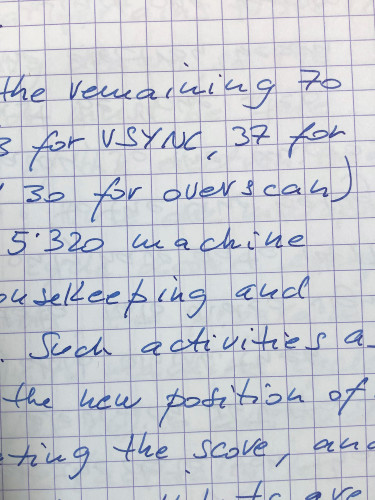 the remaining 70
3 for VSYNC, 37 for
30 for overscan)
5.320 machine
ousekeeping and
. Such activities a
the new position of
ting the score, and